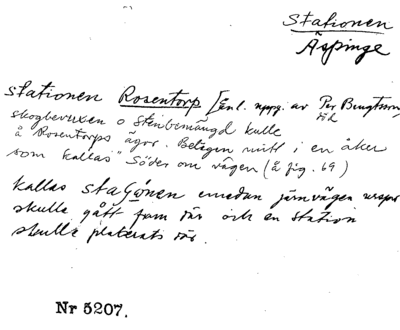 Stationen
Äspinge
Stationen Rosentorp [Enl. uppg. av Per Bengtsson,
skogbevuxen o Stenbemängd kulle
å Rosentorps ägor. Belägen mitt i en åker
som kallas "Söder om vägen (å fig. 69)
kallas stagonen emedan järnvägen
skulle gått fram där och en station
skulle placerats där.
Nr 5207.